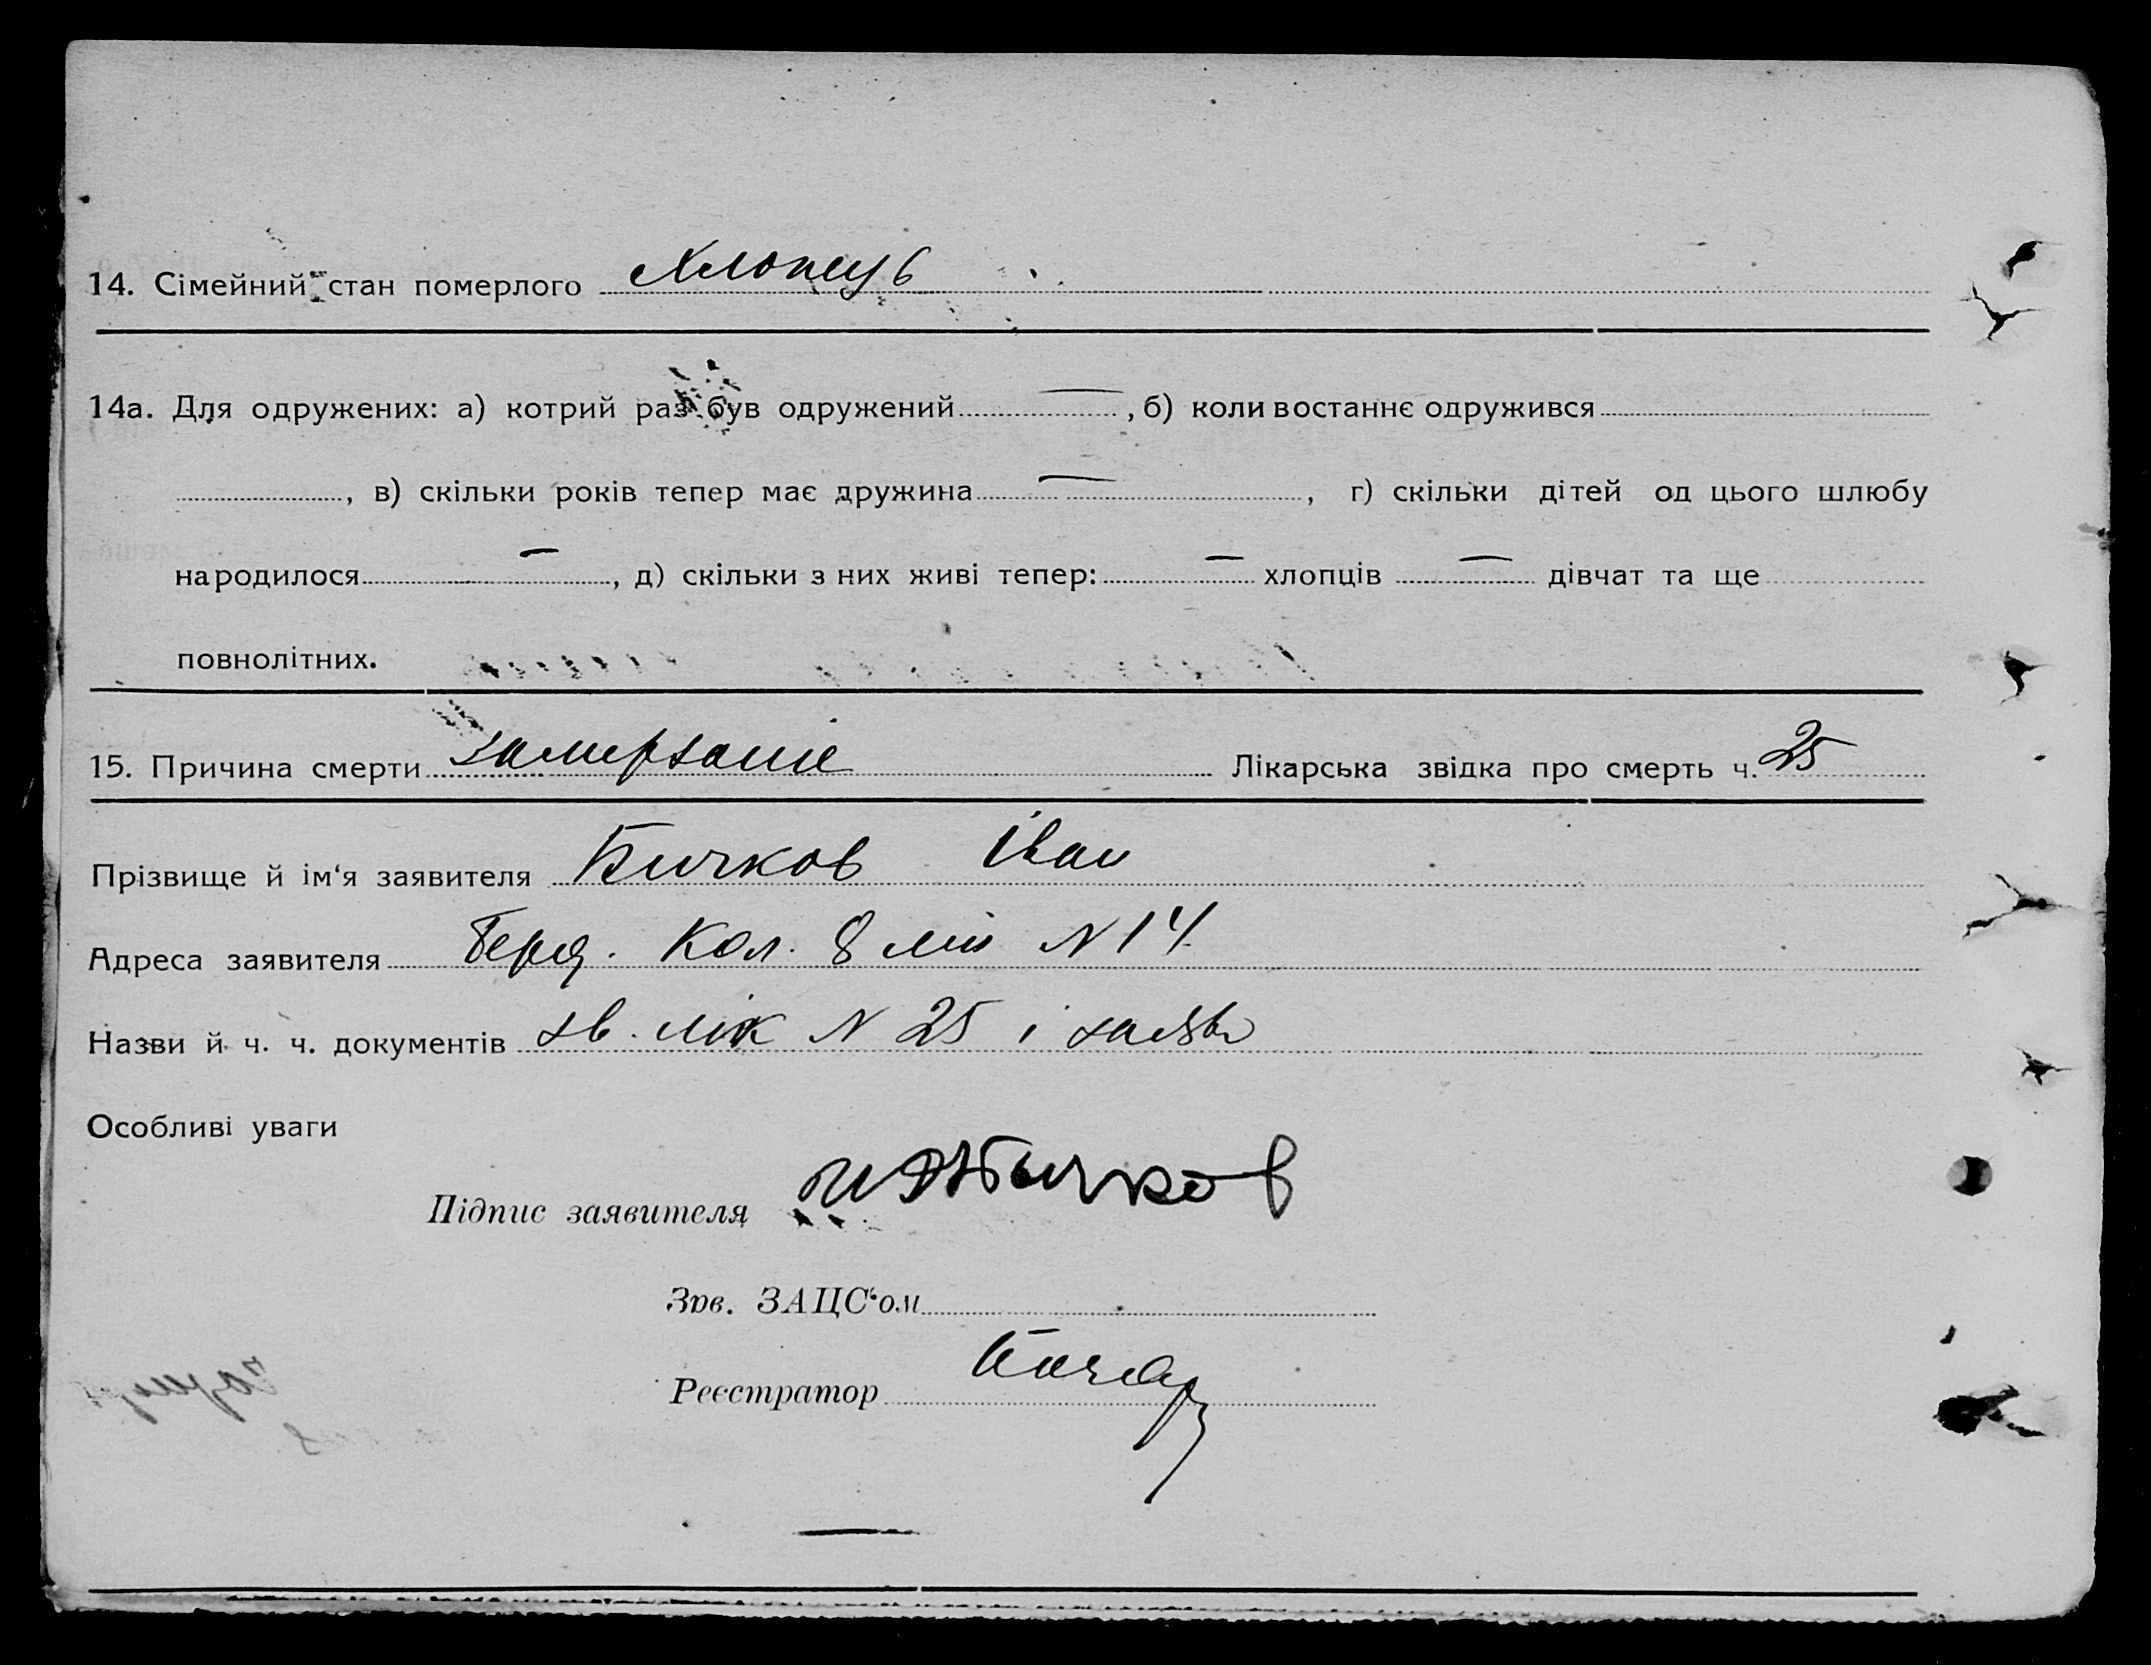 14. Сімейний стан померлого Хлопець
14а. Для одружених: а) котрий раз був одружений — , б) коли востаннє одружився
, в) скільки років тепер має дружина — , г) скільки дітей од цього шлюбу
народилося — , д) скільки з них живі тепер: — хлопців — дівчат та ще
повнолітних.
15. Причина смерти замерзаніє Лікарська звідка про смерть ч. 25
Прізвище й ім‘я заявителя Бичков Іван
Адреса заявителя Берд. Кол. 8 лін N 14
Назви й ч. ч. документів зв. лік N 25 і заява
Особливі уваги
Підпис заявителя Бычков
Зав. ЗАЦС‘ом
Реєстратор